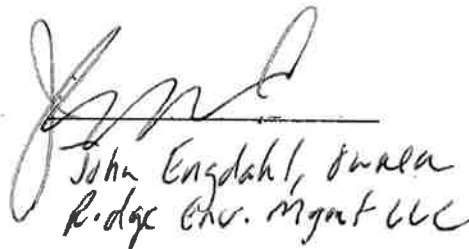 John Engdahl, owner
Ridge Env. Mgmt LLC